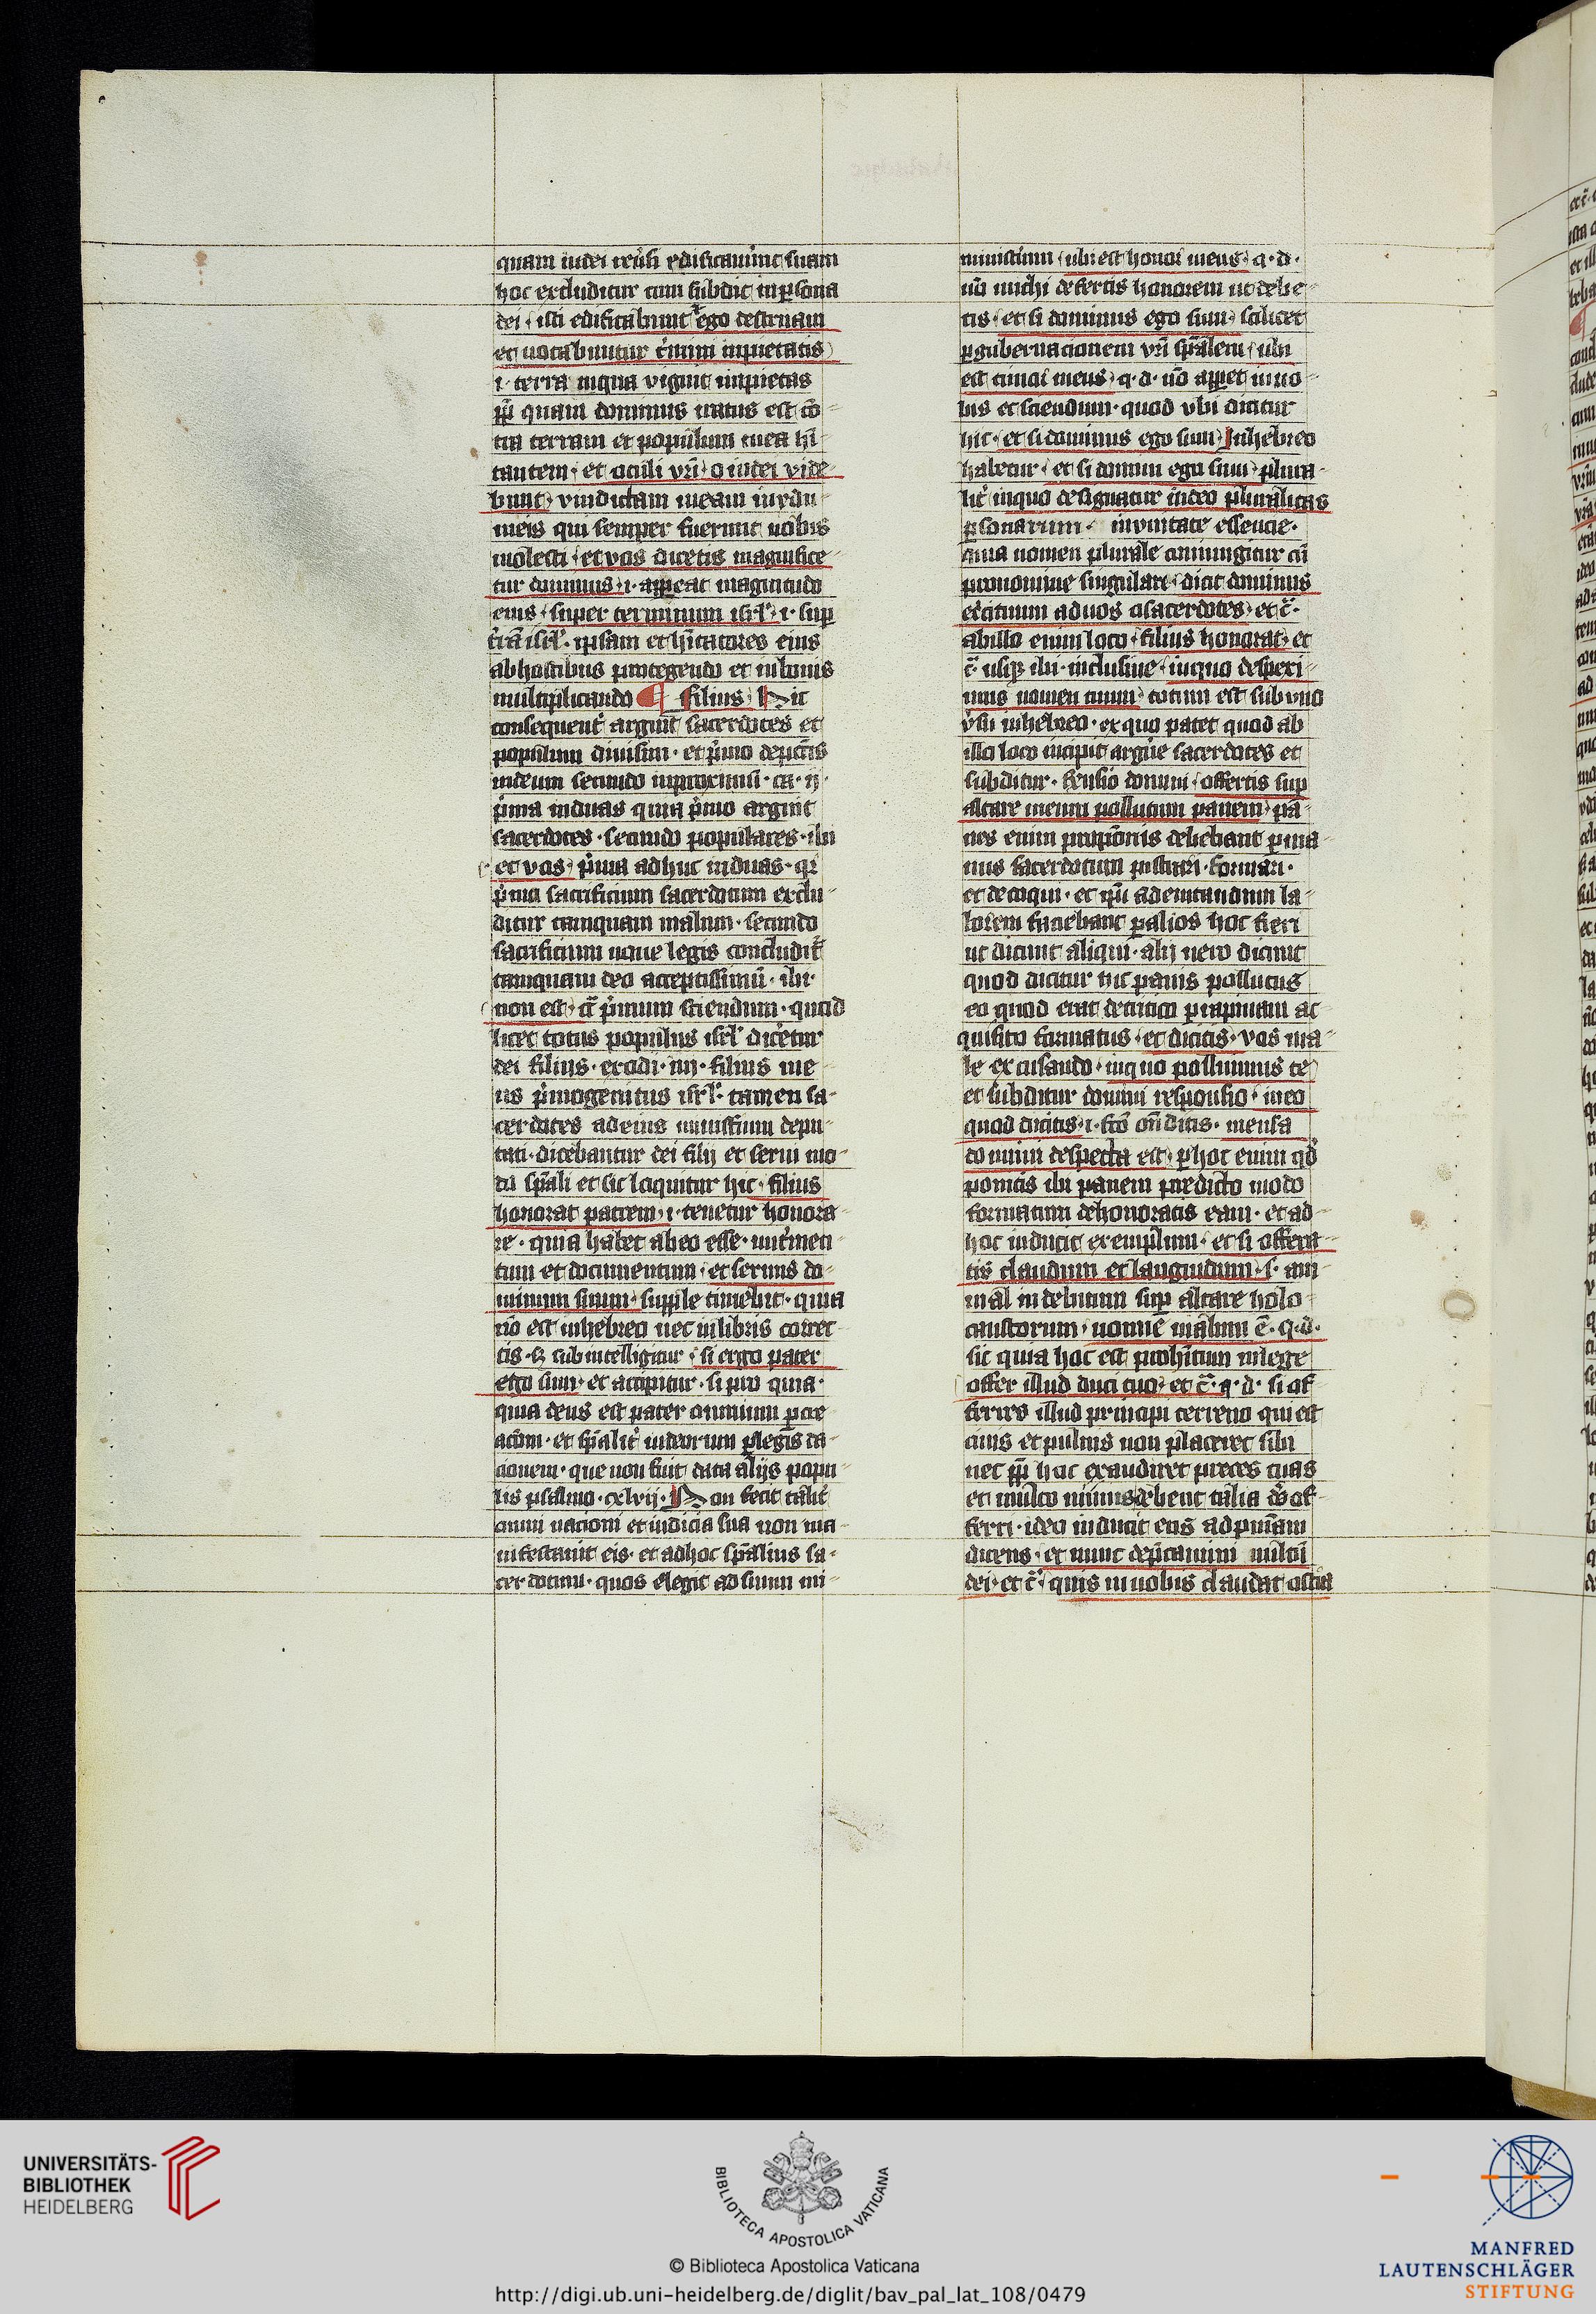 quam iudei reũsi edificauerũt suam
hoc excluditur cum subdit̃ in ꝑsona
dei · isti edificabunt ⁊ ego destruam
et uocabuntur t̃mini inpietatis
·i· terra in qua viguit inpietas
ꝓp̃ quam dominus iratus est cõ-
tra terram et populum in ea hĩ-
tantem · et oculi vr̃i · o iudei vide-
bunt vindictam meam in ydu-
meis qui semper fuerunt uobis
molesti · et vos dicetis magnifice-
tur dominus ·i· appeat magnitudo
eius · super terminum isrl̃ ·i· sup̃
t̃rã isrl̃ · ipsam et hĩtatores eius
ab hostibus protegendo et in bonis
multiplicando ¶ Filius Hic
consequent̃ arguit sacerdotes et
populum diuisim · et p̃mo de pctĩs
in deum secundo in proximũ · ca · ij ·
p̃ma in duas quia p̃mo arguit
sacerdotes · secundo populares · ibi
et vos p̃ma adhuc in duas · qꝛ
p̃mo sacrificium sacerdotum exclu-
ditur tamquam malum · secundo
sacrificium noue legis concludit̃
tamquam deo acceptissimũ · ibi ·
non est · c̃ p̃mum sciendum · quod
licet totus populus isrl̃ dicetur
dei filius · exodi · iiij · filius me-
us p̃mogenitus isrl̃ · tamen sa-
cerdotes ad eius ministerium depu-
tati · dicebantur dei filij et serui mo-
do sp̃ali et sic loquitur hic · filius
honorat patrem ·i· tenetur honora-
re · quia habet ab eo esse · nut̃imen-
tum et documentum · et seruus do-
minum suum · supple timebit · quia
nõ est in hebreo nec in libris correc-
tis · sꝫ subintelligitur · si ergo pater
ego sum · et accipitur · si pro quia ·
quia deus est pater omnium ꝑ cre-
acõm · et sp̃alit̃ iudeorum ꝑ legis da-
cionem · que non fuit data alijs popu-
lis psalmo · cxlvij · Non fecit talit̃
omni nacioni et iudicia sua non ma-
nifestauit eis · et adhoc sp̃alius sa-
cerdotum · quos elegit ad suum mi-
nisterium · ubi est honor meus · q · d ·
nõ michi defertis honorem ut debe-
tis · et si dominus ego sum · scilicet
ꝑ gubernacionem vr̃i sp̃alem · ubi
est timor meus · q · d · nõ appet in uo-
bis et sciendum · quod vbi dicitur
hic · et si dominus ego sum · In hebreo
habetur · et si domini ego sum · plura-
lit̃ in quo designatur in deo pluralitas
ꝑsonarum · in vnitate essencie ·
quia nomen plurale coniungitur cũ
pronomine singulari · dicit dominus
exercituum ad uos o sacerdotes · et c̃ ·
ab illo enim loco · filius honorat · et
c̃ · usqꝫ ibi · inclusiue · in quo despexi-
mus nomen tuum · totum est sub vno
v̾su in hebreo · ex quo patet quod ab
illo loco incipit arguẽ sacerdotes et
subditur · responsio domini · offertis sup̃
altare meum pollutum panem · pa-
nes enim proposicõnis debebant ꝑ ma-
nus sacerdotum pistari · formari ·
et decoqui · et ip̃i ad euitandum la-
borem faciebant ꝑ alios hoc fieri
ut dicunt aliqui · alij uero dicunt
quod dicitur hic panis pollutus
eo quod erat de tritico ꝑ rapinam ac-
quisito formatus · et dicitis · vos ma-
le excusando · in quo polluimus te
et subditur domini responsio · in eo
quod dicitis ·i· fcõ oñditis · mensa
domini despecta est · ꝑ hoc enim qđ
ponitis ibi panem predicto modo
formatum dehonoratis eam · et ad
hoc inducit exemplum · et si offera-
tis claudum et languidum · s · ani-
mal indebitum sup̃ altare holo-
caustorum · nonne malum ẽ · q · d ·
sic quia hoc est prohĩtum in lege
offer illud duci tuo · et c̃ · q · d · si of-
ferres illud principi terreno qui est
cinis et puluis non placeret sibi
nec ꝓp̃ hoc exaudiret preces tuas
et multo minus debent talia deo of-
ferri · ideo inducit eos ad pñiam
dicens · et nunc deprecamini vultũ
dei · et c̃ · quis in uobis claudat ostia
UNIVERSITÄTS-
BIBLIOTHEK
HEIDELBERG
BIBLIOTECA APOSTOLICA VATICANA
© Biblioteca Apostolica Vaticana
http://digi.ub.uni-heidelberg.de/diglit/bav_pal_lat_108/0479
MANFRED
LAUTENSCHLÄGER
STIFTUNG